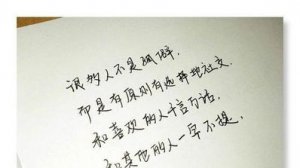 很多人不是孤僻,
而是有原则有选择地社交.
和喜欢的人千言万语,
和其他的人一字不提.